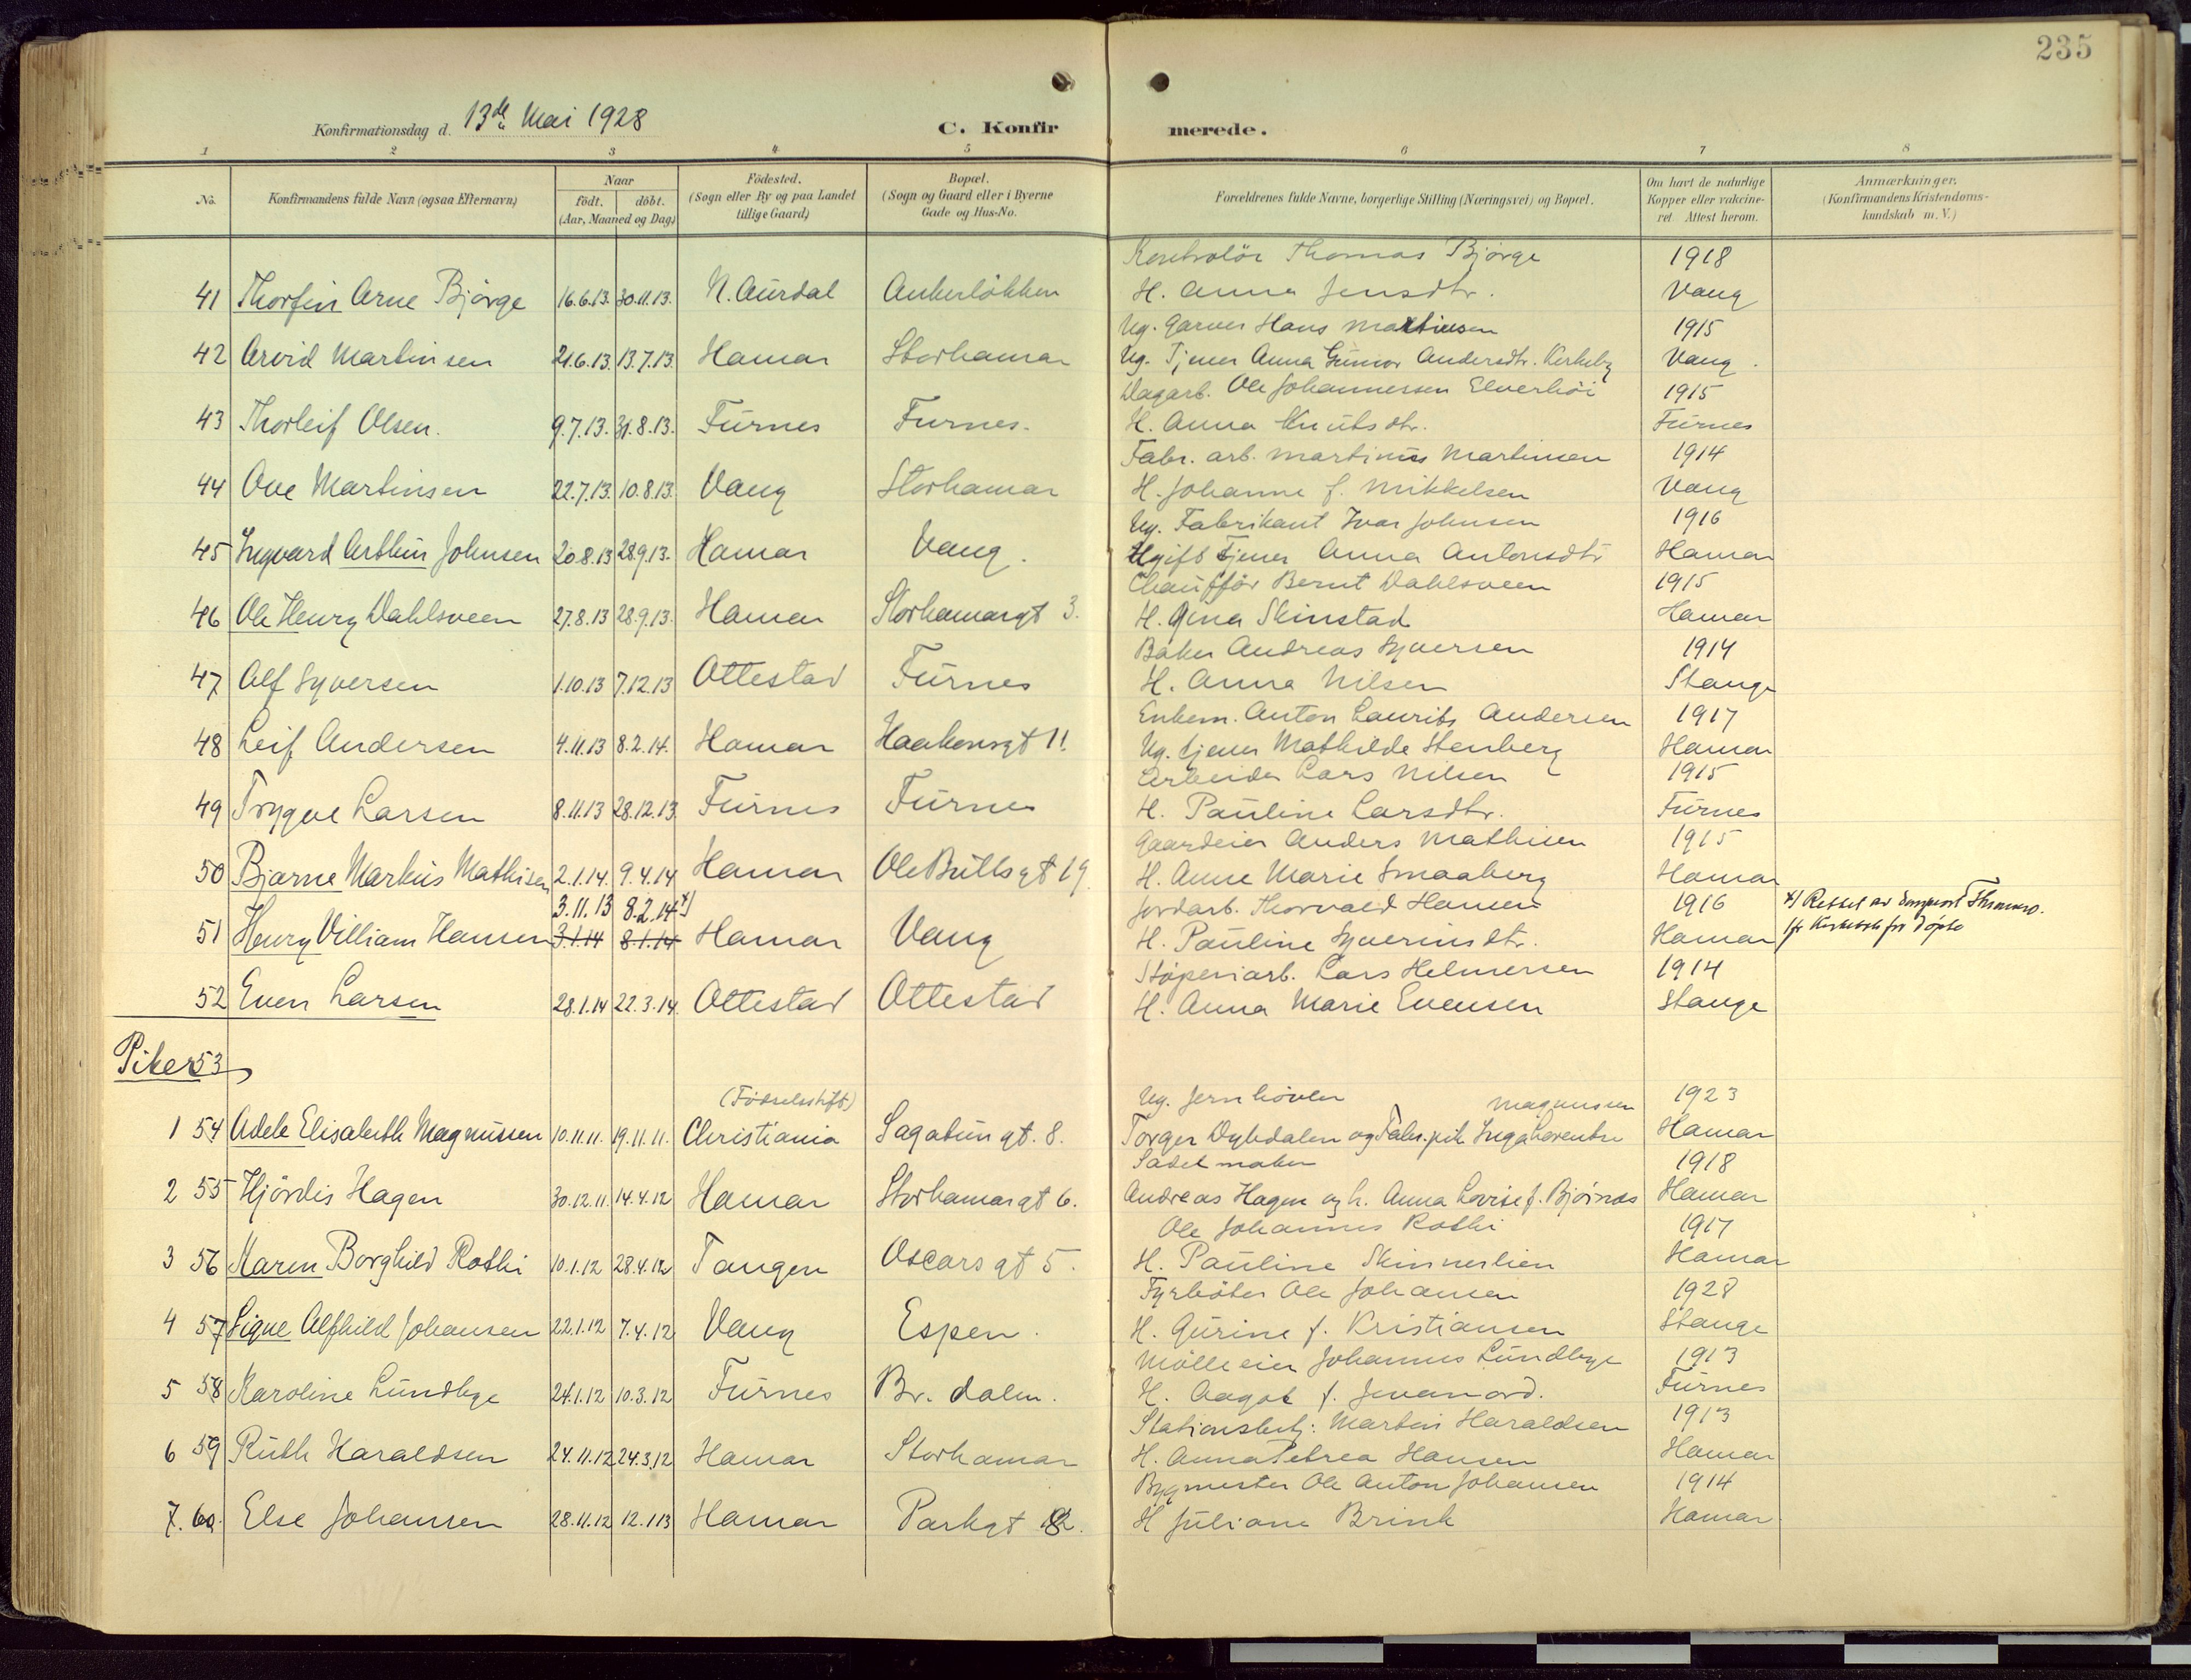 235
Konfirmationsdag d. 13de Mai 1928
C. Konfirmerede.
1 2 3 4 5 6 7 8
No. Konfirmandens fulde Navn (ogsaa Efternavn) Naar födt. döbt. (Aar, Maaned og Dag.) Födested. (Sogn eller By og paa Landet tillige Gaard.) Bopæl. (Sogn og Gaard eller i Byerne Gade og Hus-No. Forældrenes fulde Navne, borgerlige Stilling (Næringsvei) og Bopæl. Om havt de naturlige Kopper eller vakcineret Attest herom. Anmærkninger. (Konfirmandens Kristendomskundskab m. V.)
Kontrolör Thomas Bjørge 1918
41 Thorfin Arne Bjørge 16.6.13. 30.11.13. N. Aurdal Ankerløkken H. Anna Jensdtr. Vang
Ug. Garver Hans Martinsen 1915
42 Arvid Martinsen 21.6.13. 13.7.13. Hamar Storhamar Ug. Tjener Anna Gunvor Andersdtr. Kirkeby Vang.
Dagarb. Ole Johannessen Elverhöi 1915
43 Thorleif Olsen. 9.7.13. 31.8.13. Furnes Furnes. H. Anna Knutsdtr. Furnes
Fabr. arb. Martinus Martinsen 1914
44 Ove Martinsen 22.7.13. 10.8.13. Vang Storhamar H. Johanne f. Mikkelsen Vang
Ug. Fabrikant Ivar Johnsen 1916
45 Ingvard Arthur Johnsen 20.8.13 28.9.13. Hamar Vang. Ugift tjener Anna Antonsdtr Hamar
Chaufför Bernt Dahlsveen 1915
46 Ole Henry Dahlsveen 27.8.13 28.9.13. Hamar Storhamargt 3. H. Gina Skinstad Hamar
Baker Andreas Syversen 1914
47 Alf Syversen 1.10.13 7.12.13 Ottestad Furnes H. Anna Nilsen Stange
Enkem. Anton Laurits Andersen 1917
48 Leif Andersen 4.11.13 8.2.14. Hamar Haakonsgt 11. Ug. tjener Mathilde Stenberg Hamar
Arbeider Lars Nilsen 1915
49 Trygve Larsen 8.11.13 28.12.13. Furnes Furnes H. Pauline Larsdtr. Furnes
Gaardeier Anders Mathisen 1915
50 Bjarne Markus Mathisen 2.1.14. 9.4.14 Hamar Ole Bullsgt 19. H. Anne Marie Smaaberg Hamar
3.11.13 8.2.14 x) Jordarb. Thorvald Hansen 1916 x) Rettet av
51 Henry Villiam Hansen 3.1.14 8.1.14 Hamar Vang H. Pauline Syverinsdtr. Hamar
Støperiarb. Lars Helmersen 1914
52 Even Larsen 28.1.14 22.3.14. Ottestad Ottestad H. Anna Marie Evensen Stange
Piker 53
(Födselsstift) Ug. Jernhövler Magnussen 1923
1 54 Adele Elisabeth Magnussen 10.11.11. 19.11.11. Christiania Sagatungt. 8. Torger Dybdalen og Fabr.pike Inga Lorentse Hamar
Sadelmaker 1918
2 55 Hjördis Hagen 30.12.11. 14.4.12 Hamar Storhamargt 6. Andreas Hagen og h. Anna Lovise f. Bjørnæs Hamar
Ole Johannes Rothi 1917
3 56 Karen Borghild Rothi 10.1.12 28.4.12 Tangen Oscarsgt 5. H. Pauline Skinnerlien Hamar
Fyrböter Ole Johansen 1928
4 57 Signe Alfhild Johansen 22.1.12 7.4.12 Vang Espen. H. Gurine f. Kristiansen Stange
Mölleeier Johannes Lundbye 1913
5 58 Karoline Lundbye 24.1.12 10.3.12 Furnes Br. dalen. H. Aagot f. Furnes
Stationsbetj. Martin Haraldsen 1913
6 59 Ruth Haraldsen 24.11.12 24.3.12 Hamar Storhamar H. Anna Petrea Hansen Hamar
Bygmester Ole Anton Johansen 1914
7. 60. Else Johansen 28.11.12 12.1.13 Hamar Parkgt H Juliane Brink Hamar